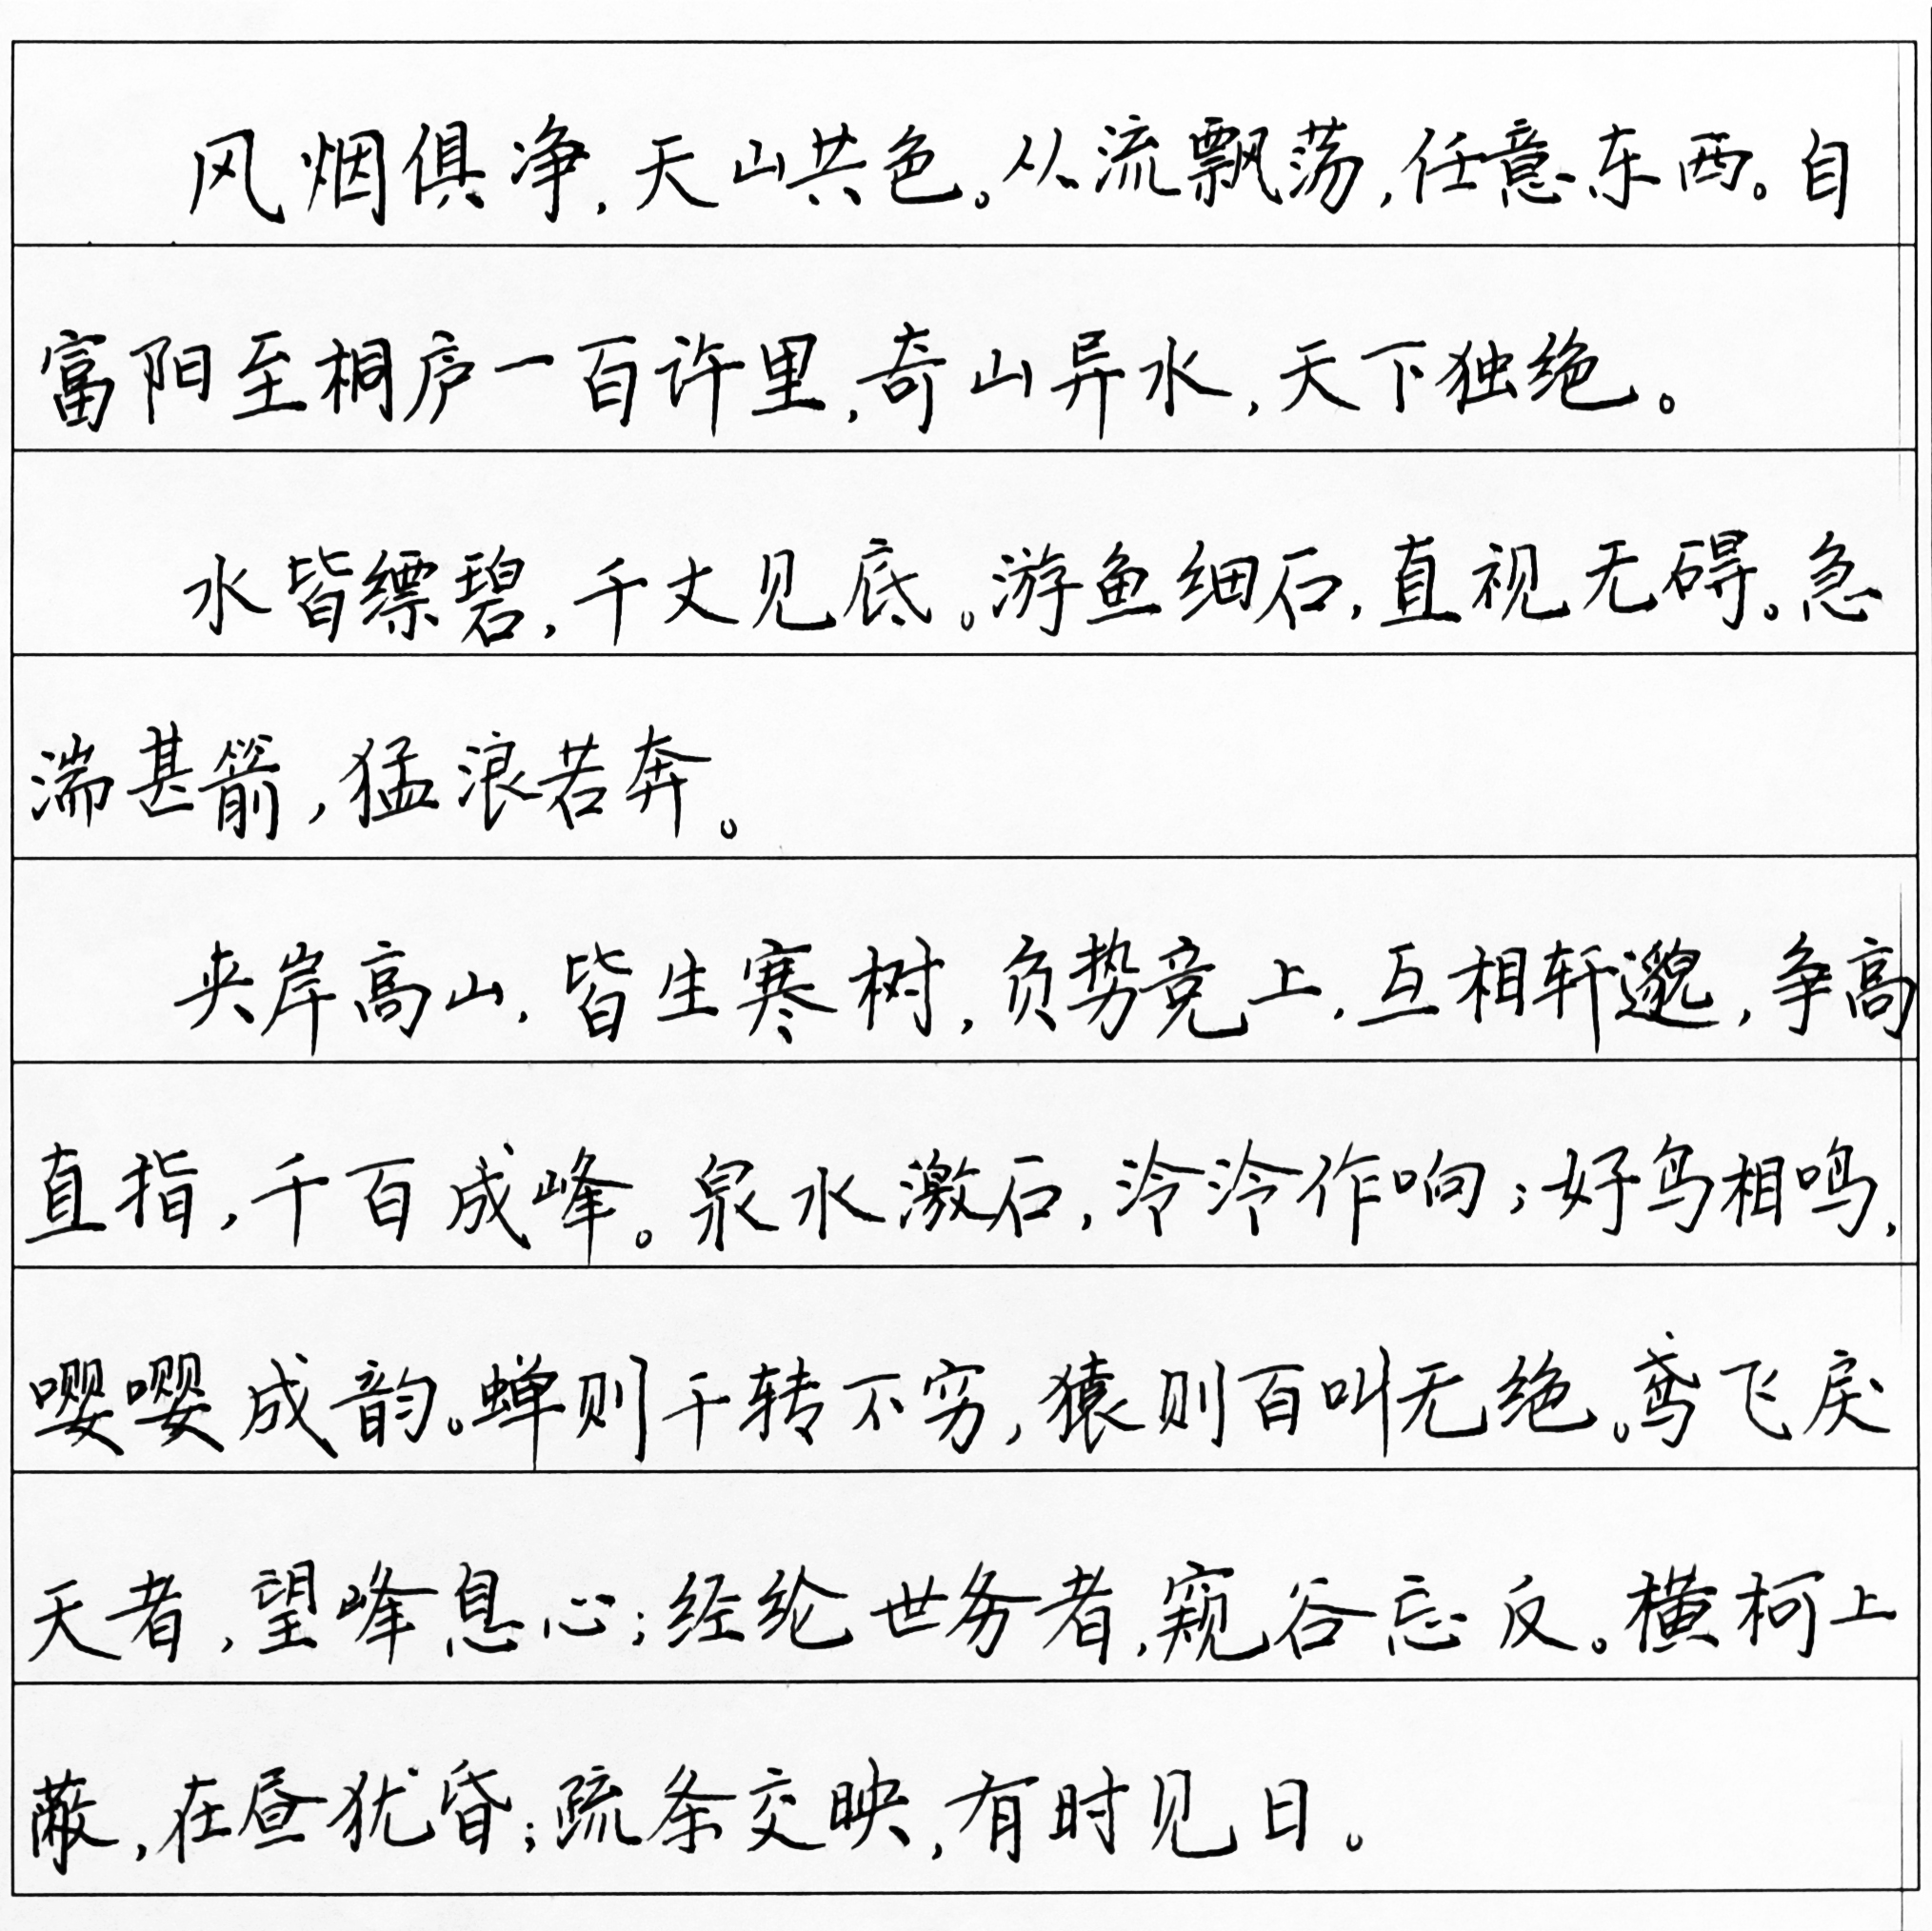 风烟俱净,天山共色。从流飘荡,任意东西。自
富阳至桐庐一百许里,奇山异水,天下独绝。
水皆缥碧,千丈见底。游鱼细石,直视无碍。急
湍甚箭,猛浪若奔。
夹岸高山,皆生寒树,负势竞上,互相轩邈,争高
直指,千百成峰。泉水激石,泠泠作响;好鸟相鸣,
嘤嘤成韵。蝉则千转不穷,猿则百叫无绝。鸢飞戾
天者,望峰息心;经纶世务者,窥谷忘反。横柯上
蔽,在昼犹昏;疏条交映,有时见日。